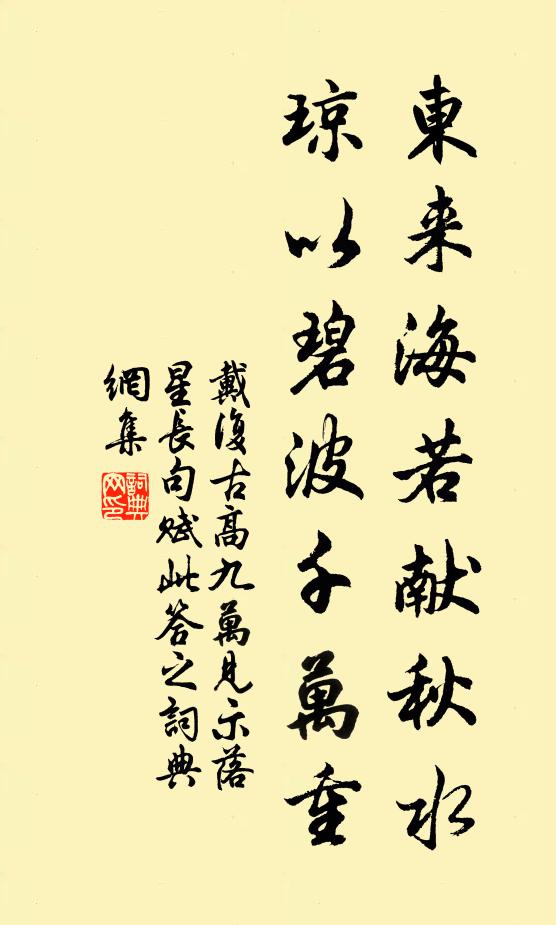 東来海若献秋水
琼以碧波千萬重
戴復古高九萬見示落
星長句賦此答之詞典
網集
詞典
网印